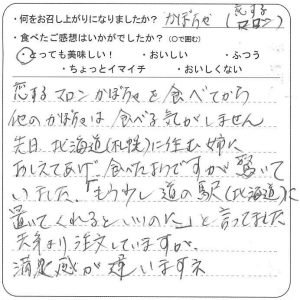 ・何をお召し上がりになりましたか? かぼちゃ(恋するマロン)
・食べたご感想はいかがでしたか?(○で囲む)
・とっても美味しい! ・おいしい ・ふつう
・ちょっとイマイチ ・おいしくない
恋するマロンかぼちゃを食べてから
他のかぼちゃは食べる気がしません
先日北海道(札幌)に住む姉に
おしえてあげ、食べたようですが驚いて
いました。「もう少し道の駅(北海道)に
置いてくれるといいのに」と言ってました
注文していますが、
満足感が違いますネ